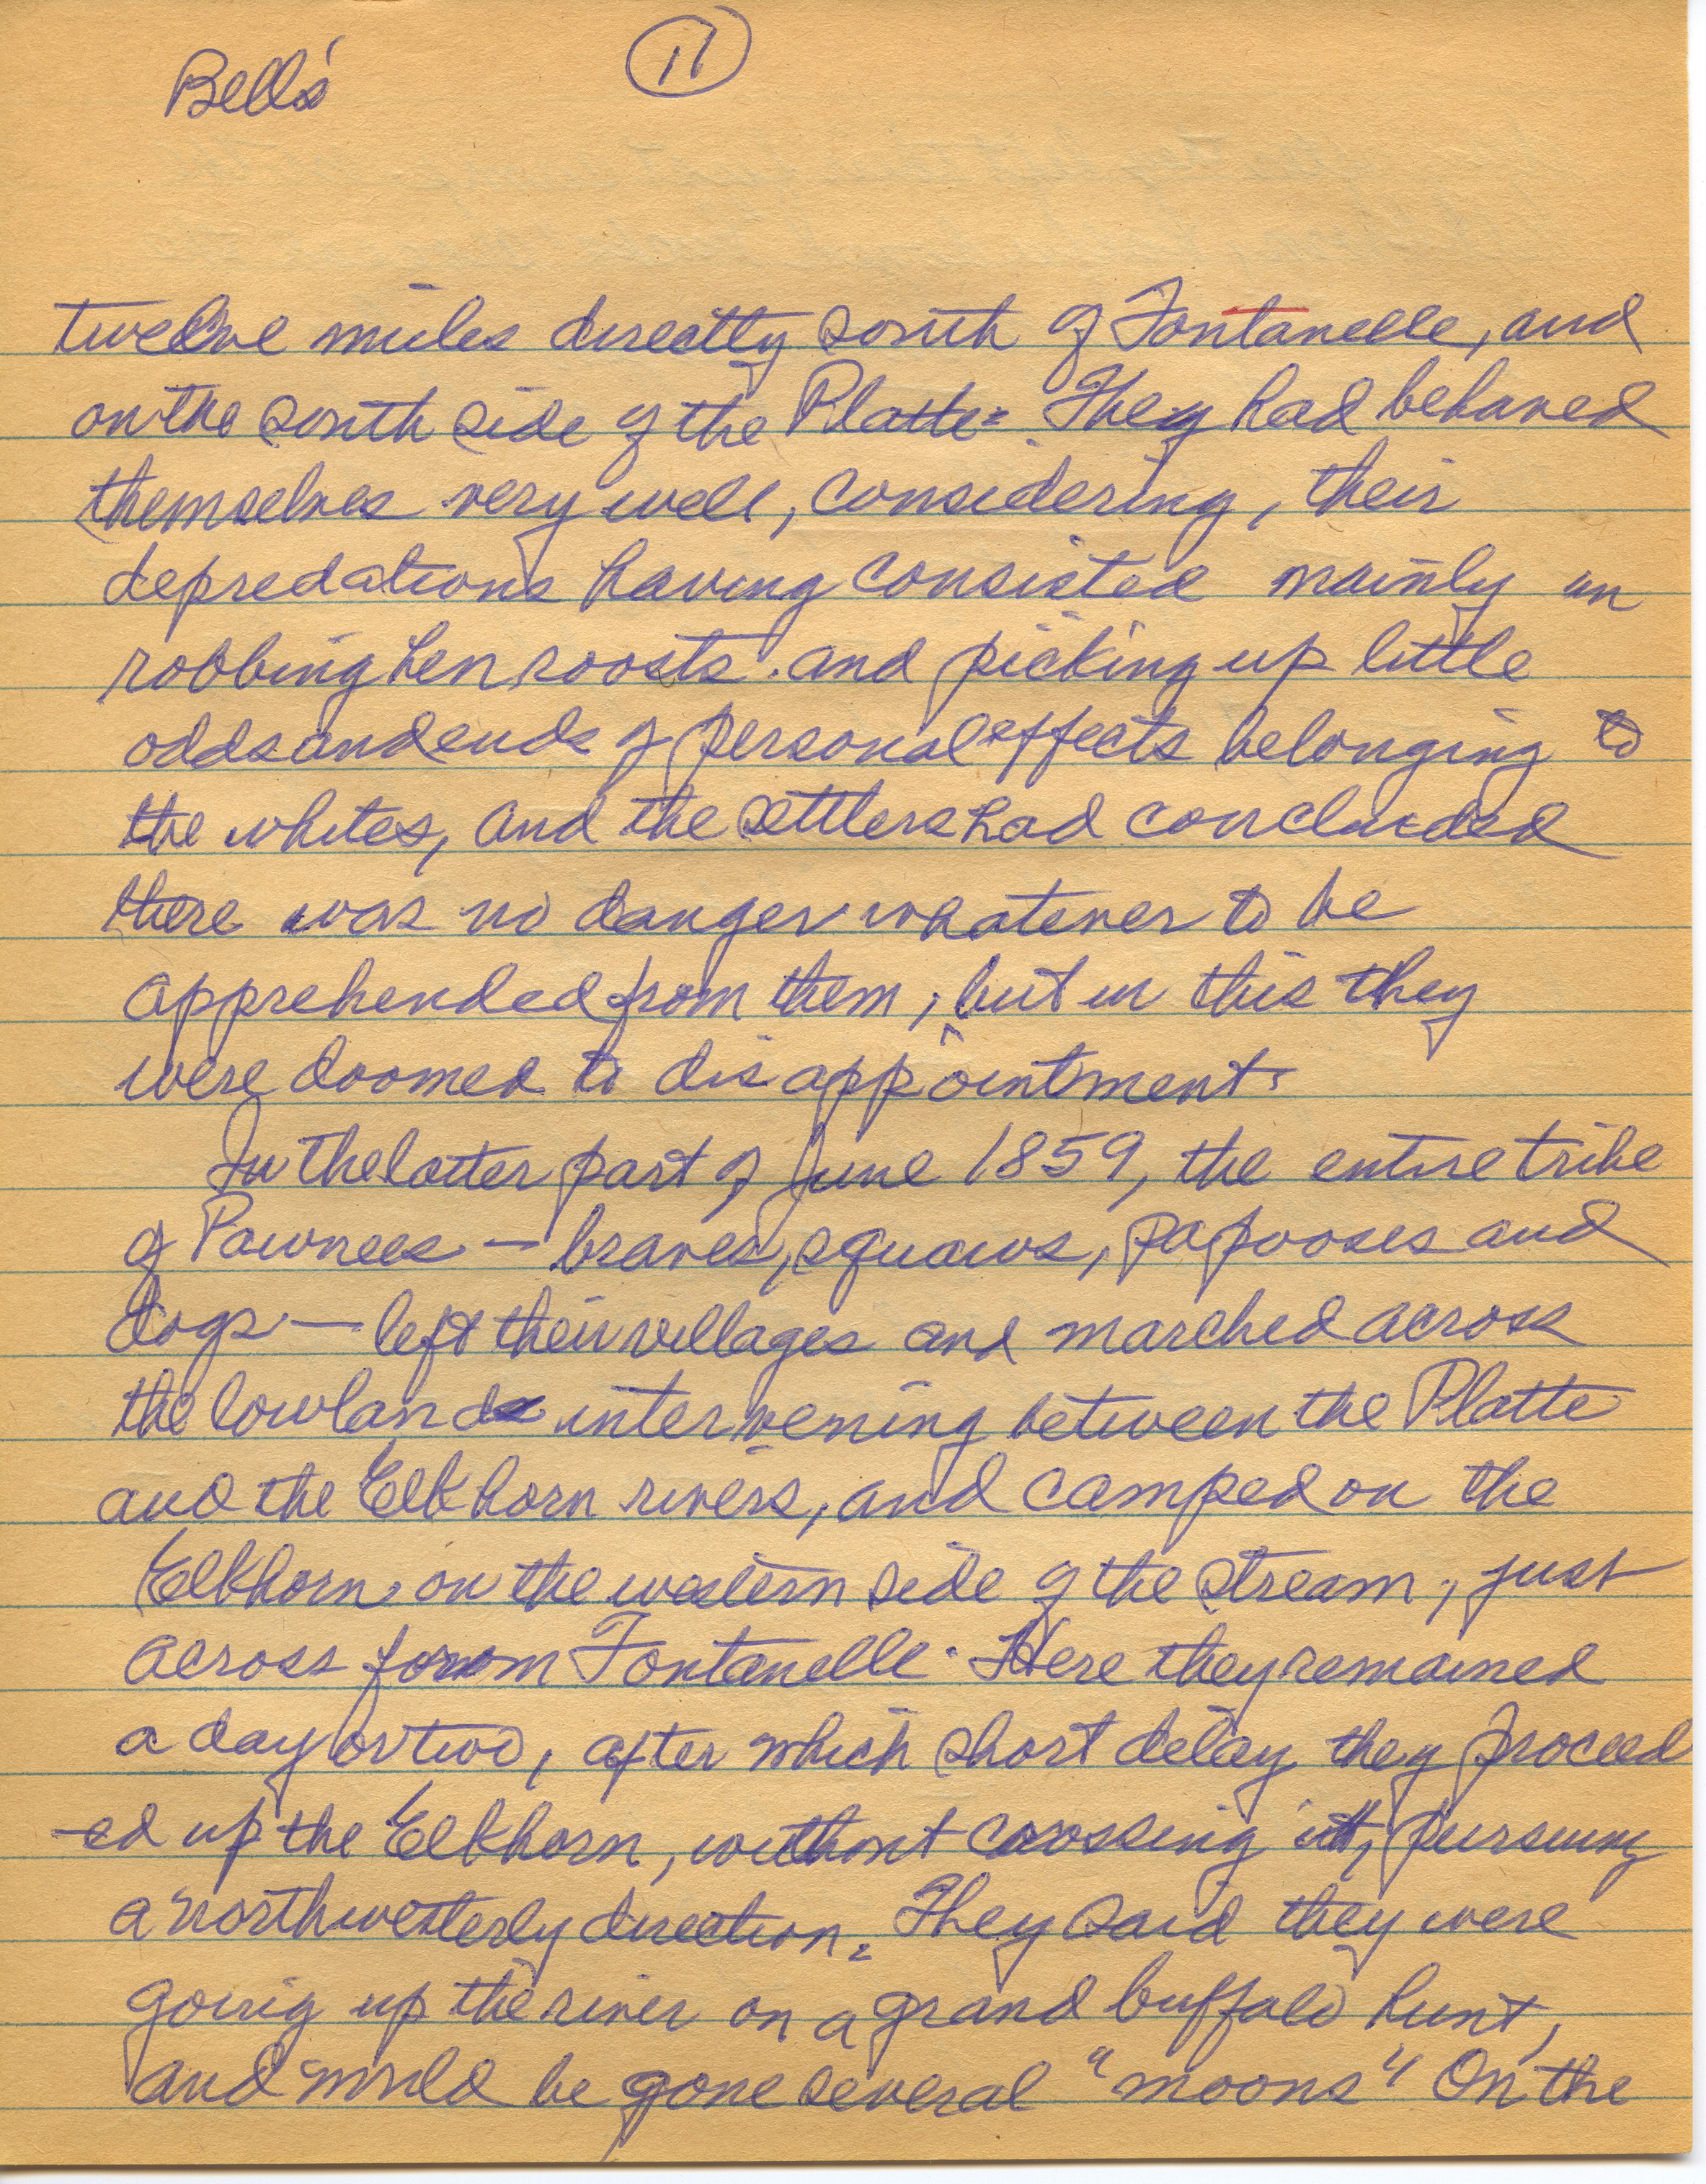 Bell's
17
twelve miles directly south of Fontanelle, and
on the south side of the Platte. They had behaved
themselves very well, considering, their
depredations having consisted mainly in
robbing hen roosts. and picking up little
odds and ends of personal effects belonging to
the whites, and the settlers had concluded
there was no danger whatever to be
apprehended from them, but in this they
were doomed to disappointment.
In the latter part of June 1859, the entire tribe
of Pawnees — braves, squaws, papooses and
dogs — left their villages and marched across
the lowlands intervening between the Platte
and the Elkhorn rivers, and camped on the
Elkhorn on the western side of the stream, just
across from Fontanelle. Here they remained
a day or two, after which short delay they proceed
-ed up the Elkhorn, without crossing it, pursuing
a northwesterly direction. They said they were
going up the river on a grand buffalo hunt,
and would be gone several "moons" On the